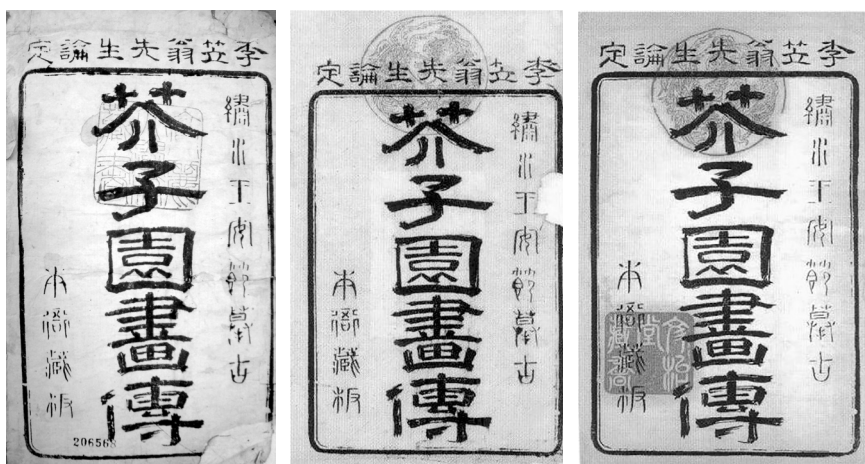 李笠翁先生論定
繡水王安節摹古
芥子園畫傳
本衙藏板
李笠翁先生論定
繡水王安節摹古
芥子園畫傳
本衙藏板
李笠翁先生論定
繡水王安節摹古
芥子園畫傳
本衙藏板